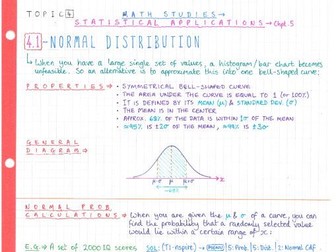 TOPIC 4
MATH STUDIES →
STATISTICAL APPLICATIONS → Chpt. 5
4.1 - NORMAL DISTRIBUTION
↳ When you have a large single set of values, a histogram/bar chart becomes
unfeasible. So an alternative is to approximate this into one bell-shaped curve:
PROPERTIES → • SYMMETRICAL BELL-SHAPED CURVE
• THE AREA UNDER THE CURVE IS EQUAL TO 1 (or 100%)
• IT IS DEFINED BY ITS MEAN (μ) & STANDARD DEV. (σ)
• THE MEAN IS IN THE CENTER
• APPROX. 68% OF THE DATA IS WITHIN 1σ OF THE MEAN
• ≈95% IS ±2σ OF THE MEAN, ≈99% IS ±3σ
GENERAL
DIAGRAM →
μ-σ μ μ+σ
≈68%
NORMAL PROB.
CALCULATIONS → ↳ When you are given the μ & σ of a curve, you can
find the probability that a randomly selected value
would lie within a certain range of x:
E.G. → A set of 2000 IQ scores SOL: (TI-nspire) → MENU 5: Prob. 5: Dist. 2: Normal Cdf